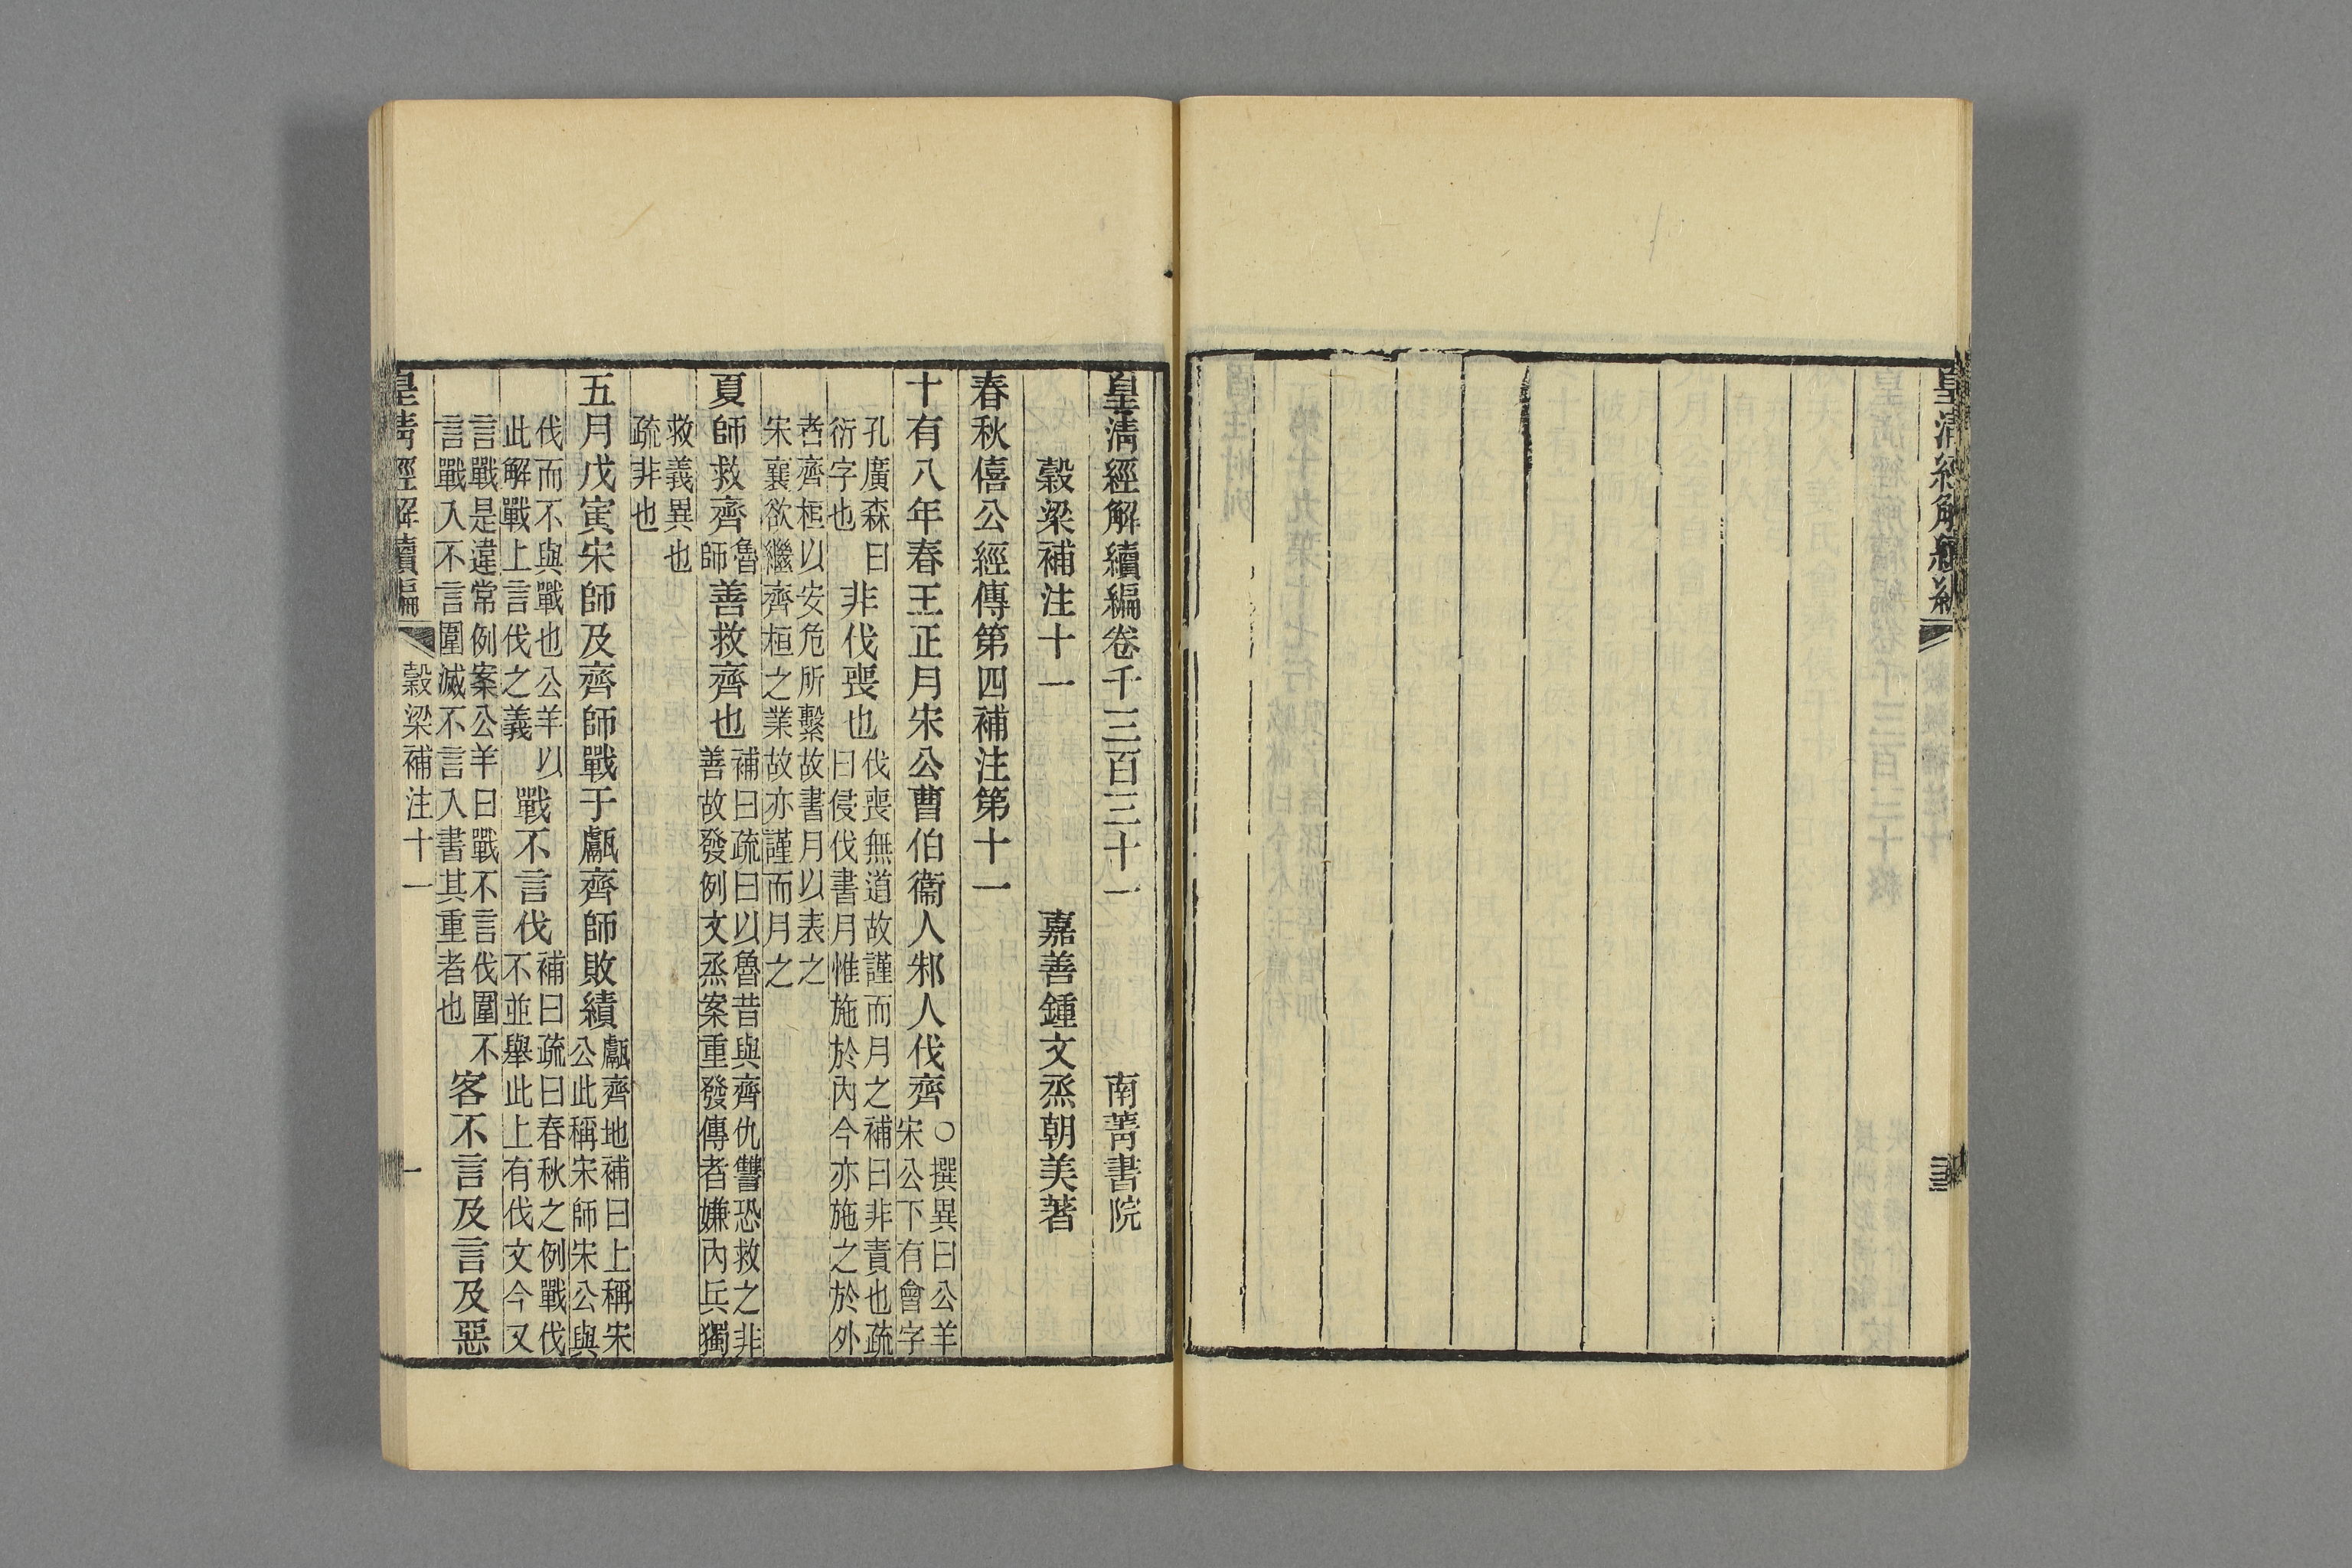 皇清經解續編卷千三百三十一 南菁書院
穀梁補注十一 嘉善鍾文烝朝美著
春秋僖公經傳第四補注第十一
十有八年春王正月宋公曹伯衞人邾人伐齊
○撰異曰公羊
宋公下有會字
孔廣森曰
衍字也
非伐喪也
伐喪無道故謹而月之補曰非責也疏
曰侵伐書月惟施於內今亦施之於外
者齊桓以安危所繫故書月以表之
宋襄欲繼齊桓之業故亦謹而月之
夏師救齊
魯
師
善救齊也
補曰疏曰以魯昔與齊仇讐恐救之非
善故發例文烝案重發傳者嫌內兵獨
救義異也
疏非也
五月戊寅宋師及齊師戰于甗齊師敗績
甗齊地補曰上稱宋
公此稱宋師宋公與
伐而不與戰也公羊以
此解戰上言伐之義
戰不言伐
補曰疏曰春秋之例戰伐
不並舉此上有伐文今又
言戰是違常例案公羊曰戰不言伐圍不
言戰入不言圍滅不言入書其重者也
客不言及言及惡
皇清經解續編 穀梁補注十一 一